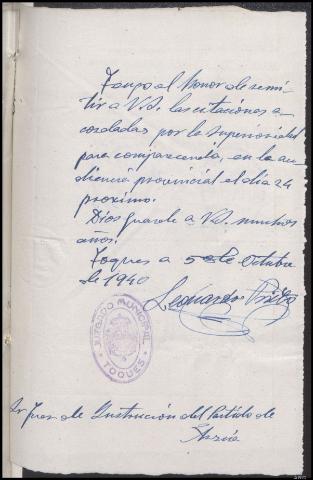 Tengo el honor de remi-
tir a V.S. las citaciones a-
cordadas por la superioridad
para comparecencia, en la au-
diencia provincial el dia 24
proximo.
Dios guarde a V.S. muchos
años.
Toques a 5 de Octubre
de 1940
Leonardo Prieto
JUZGADO MUNICIPAL
TOQUES
Sr Juez de Instrucción del Partido de
Arzúa